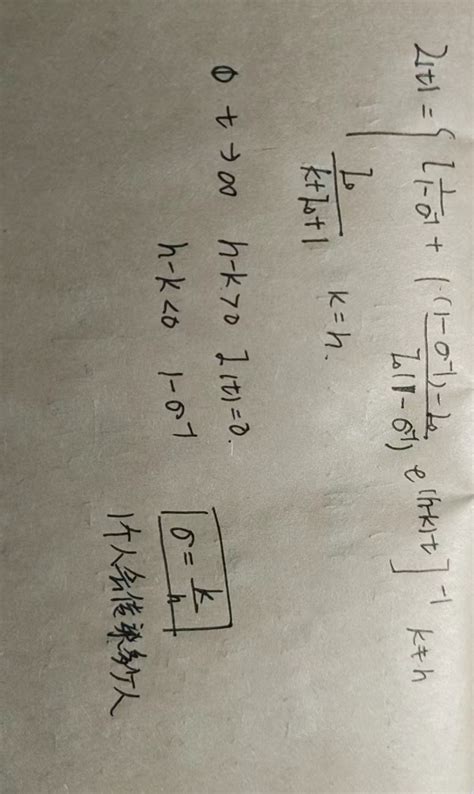 I(t) = { [ 1/(1-σ⁻¹) + 1·(1-σ⁻¹)-I₀/I₀(1-σ⁻¹) e^(h-k)t ]⁻¹ k≠h
I₀/kt I₀+1 k=h.
① t→∞ h-k>0 I(t)=0.
h-k<0 1-σ⁻¹
σ = k/h
1个人会传染多少个人